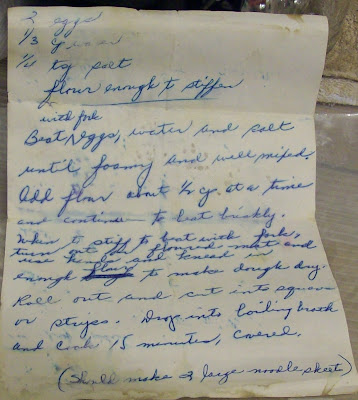 2 eggs
1/3 c
tsp salt
flour enough to stiffen
with fork
Beat eggs, water and salt
until foamy and well mixed.
Add flour about 1/2 cup at a time
and continue to beat briskly.
When to stiff to beat with fork,
turn out on floured mat and
use hands and knead in
enough flour to make dough dry.
Roll out and cut into squares
or strips. Drop into boiling broth
and cook 15 minutes, covered.
(Should make 2 large noodle sheets)